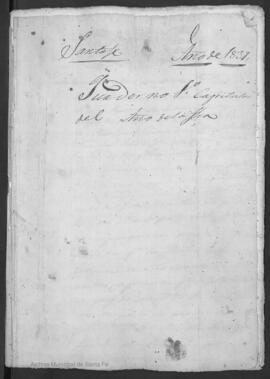 Santafe Año de 1831,
Quaderno 1º Capitular
del Año de la fha
Archivo Municipal de Santa Fe